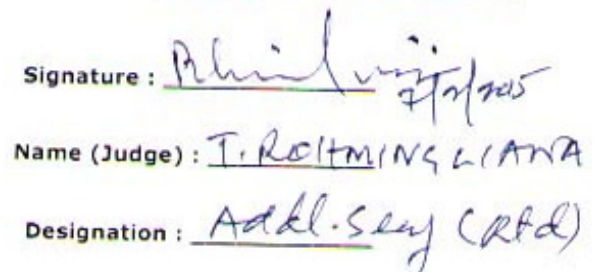 Signature : 7/2/2015
Name (Judge) : T. ROHMINGLIANA
Designation : Addl. Secy (Rtd)